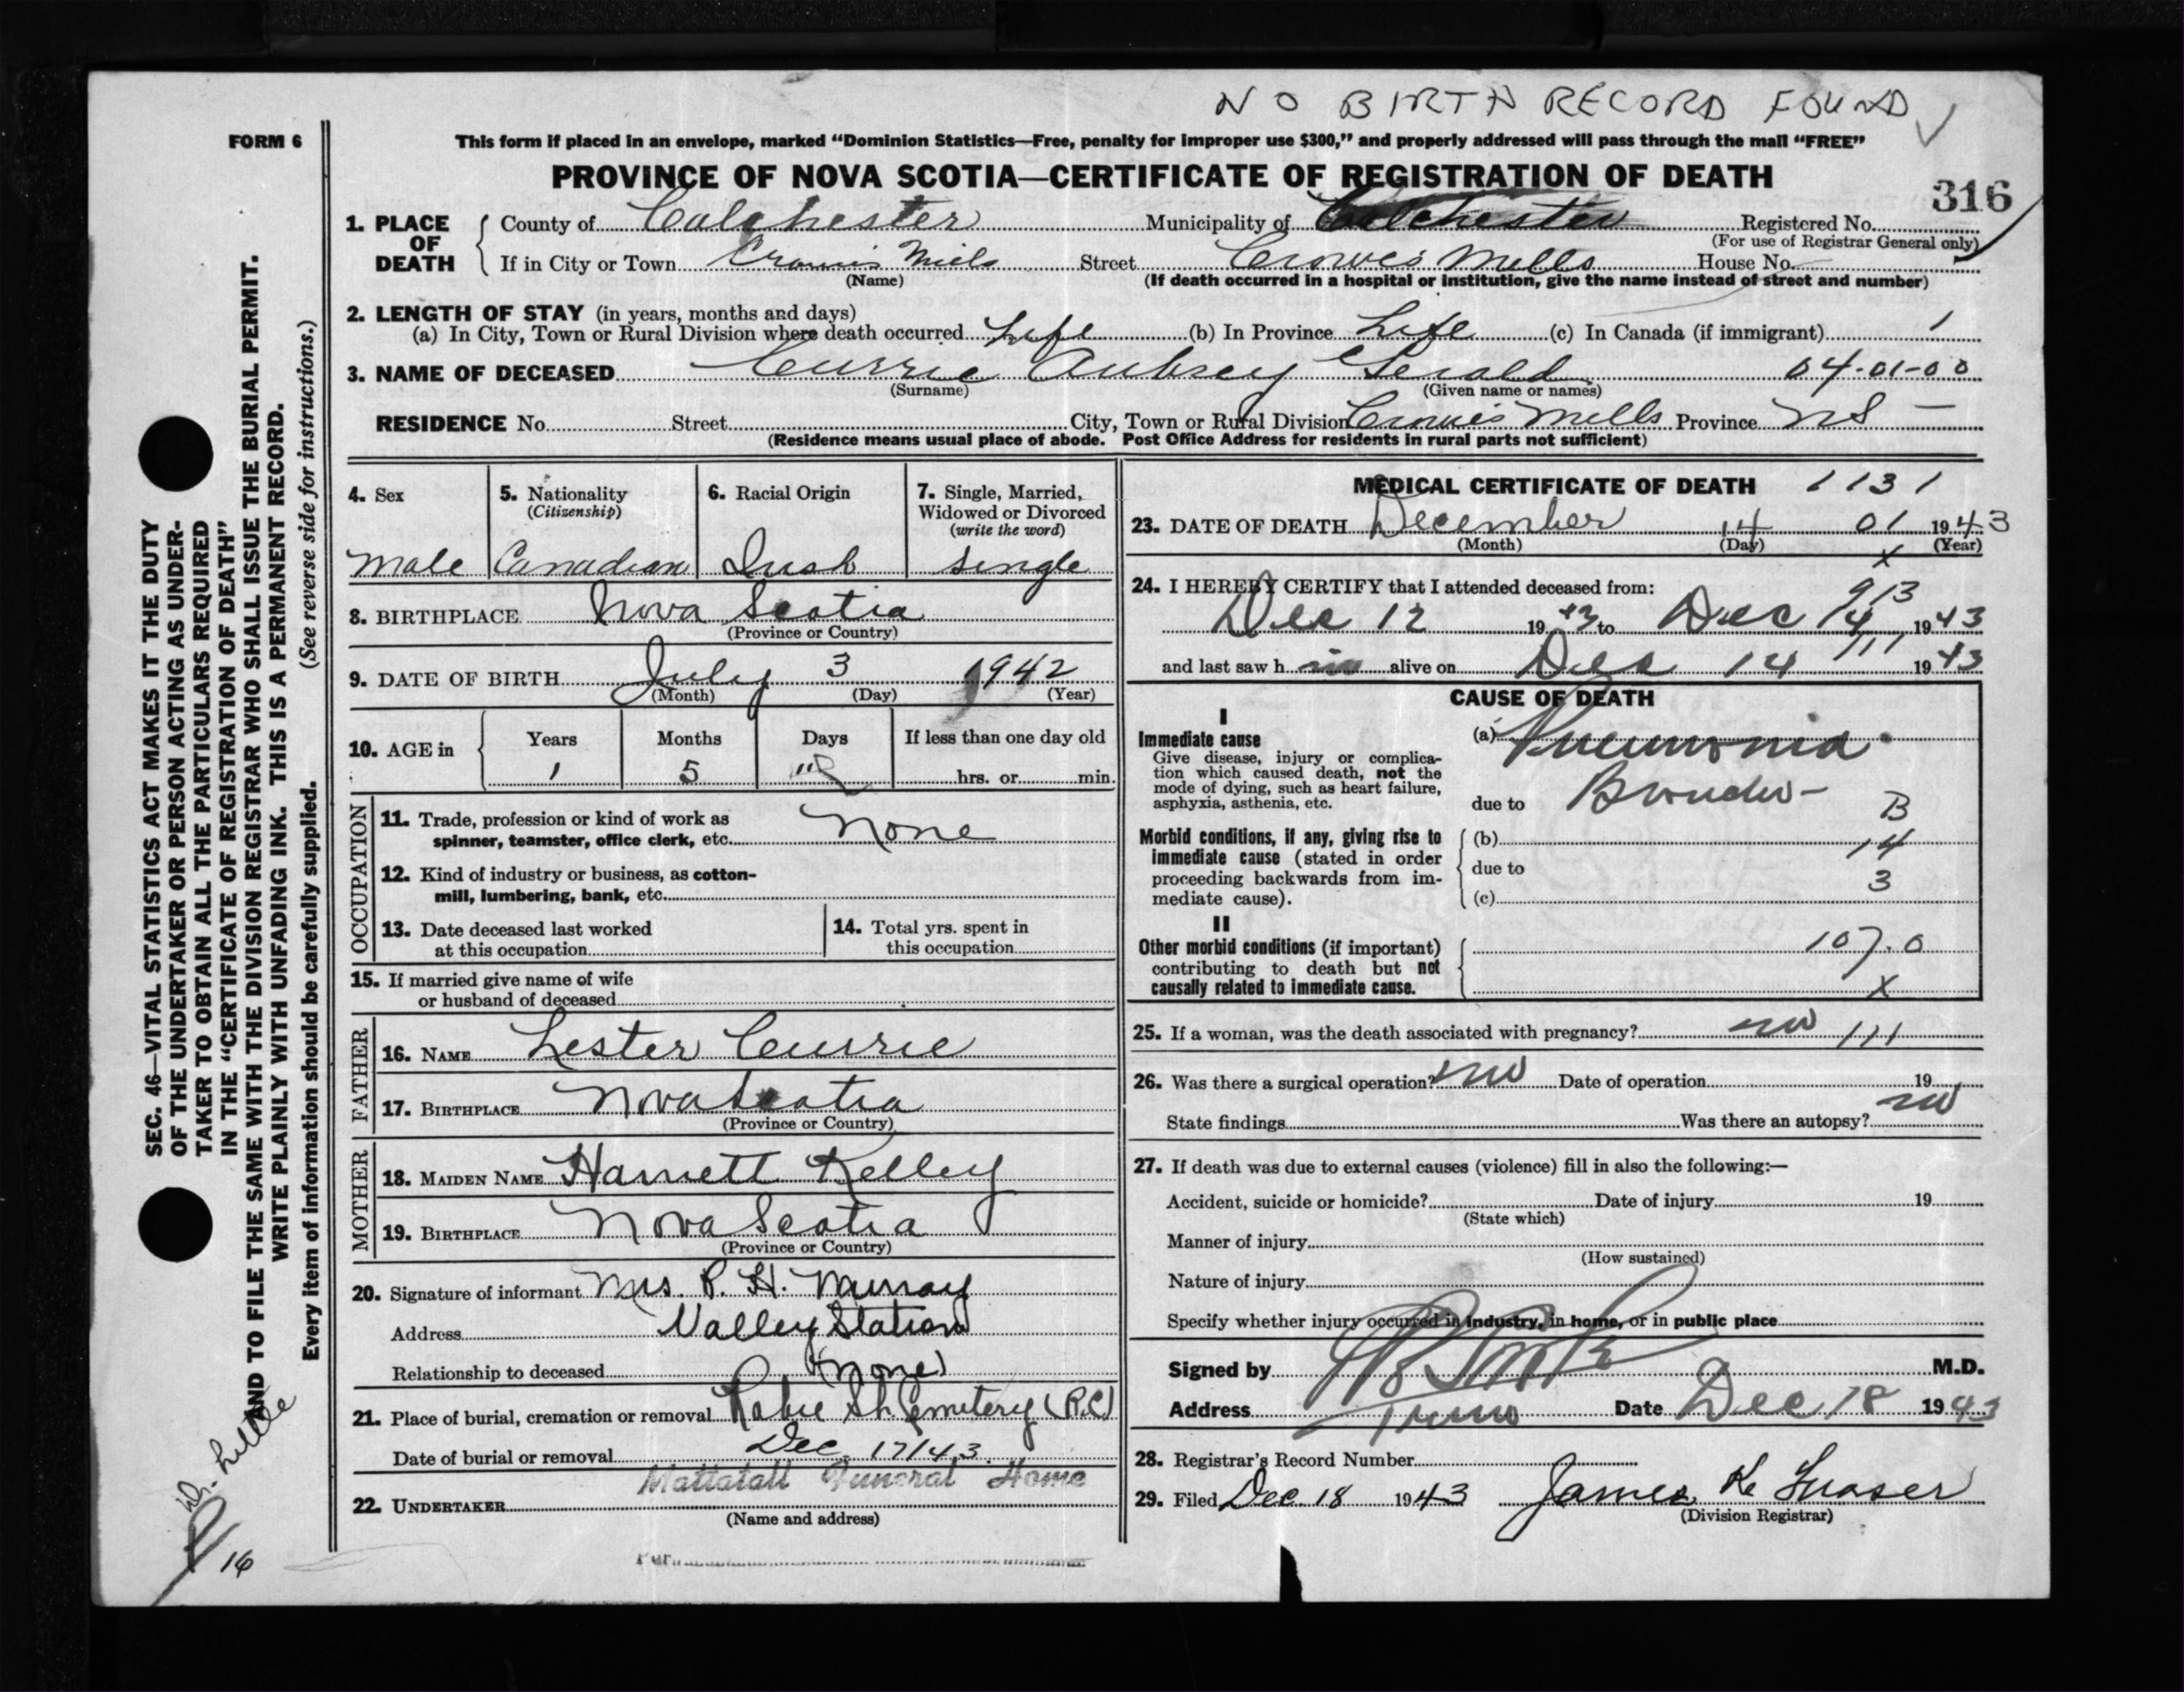 NO BIRTH RECORD FOUND ✓
FORM 6
This form if placed in an envelope, marked “Dominion Statistics—Free, penalty for improper use $300,” and properly addressed will pass through the mail “FREE”
PROVINCE OF NOVA SCOTIA—CERTIFICATE OF REGISTRATION OF DEATH
316
1. PLACE OF DEATH
County of Colchester Municipality of Colchester Registered No.
(For use of Registrar General only)
If in City or Town Crowe's Mills Street Crowe's Mills House No.
(Name) (If death occurred in a hospital or institution, give the name instead of street and number)
2. LENGTH OF STAY (in years, months and days)
(a) In City, Town or Rural Division where death occurred Life (b) In Province Life (c) In Canada (if immigrant) 1
3. NAME OF DECEASED Currie Aubrey Gerald 04-01-00
(Surname) (Given name or names)
RESIDENCE No. Street City, Town or Rural Division Crowe's Mills Province NS —
(Residence means usual place of abode. Post Office Address for residents in rural parts not sufficient)
4. Sex
male
5. Nationality
(Citizenship)
Canadian
6. Racial Origin
Irish
7. Single, Married,
Widowed or Divorced
(write the word)
single
8. BIRTHPLACE Nova Scotia
(Province or Country)
9. DATE OF BIRTH July 3 1942
(Month) (Day) (Year)
10. AGE in
Years Months Days If less than one day old
1 5 11 hrs. or min.
OCCUPATION
11. Trade, profession or kind of work as
spinner, teamster, office clerk, etc. None
12. Kind of industry or business, as cotton-
mill, lumbering, bank, etc.
13. Date deceased last worked
at this occupation
14. Total yrs. spent in
this occupation
15. If married give name of wife
or husband of deceased
FATHER
16. NAME Lester Currie
17. BIRTHPLACE Nova Scotia
(Province or Country)
MOTHER
18. MAIDEN NAME Harriett Kelley
19. BIRTHPLACE Nova Scotia
(Province or Country)
20. Signature of informant Mrs. R. H. Murray
Address Valley Station
Relationship to deceased (none)
21. Place of burial, cremation or removal Robie St. Cemetery (R.C)
Date of burial or removal Dec 17/43
Mattatall Funeral Home
22. UNDERTAKER
(Name and address)
Per
MEDICAL CERTIFICATE OF DEATH 1131
23. DATE OF DEATH December 14 01 1943
(Month) (Day) (Year)
x
24. I HEREBY CERTIFY that I attended deceased from:
913
Dec 12 1943 to Dec 14 1943
111
and last saw h im alive on Dec 14 1943
CAUSE OF DEATH
I
Immediate cause
Give disease, injury or complica-
tion which caused death, not the
mode of dying, such as heart failure,
asphyxia, asthenia, etc.
(a) Pneumonia
due to Broncho- B
Morbid conditions, if any, giving rise to
immediate cause (stated in order
proceeding backwards from im-
mediate cause).
(b) 14
due to
3
(c)
II
Other morbid conditions (if important)
contributing to death but not
causally related to immediate cause.
107.0
x
25. If a woman, was the death associated with pregnancy? no 111
26. Was there a surgical operation? no Date of operation 19
State findings Was there an autopsy? no
27. If death was due to external causes (violence) fill in also the following:—
Accident, suicide or homicide? Date of injury 19
(State which)
Manner of injury
(How sustained)
Nature of injury
Specify whether injury occurred in industry, in home, or in public place
Signed by M.D.
Address Truro Date Dec 18 1943
28. Registrar's Record Number
29. Filed Dec 18 1943 James K Fraser
(Division Registrar)
SEC. 46—VITAL STATISTICS ACT MAKES IT THE DUTY
OF THE UNDERTAKER OR PERSON ACTING AS UNDER-
TAKER TO OBTAIN ALL THE PARTICULARS REQUIRED
IN THE “CERTIFICATE OF REGISTRATION OF DEATH”
AND TO FILE THE SAME WITH THE DIVISION REGISTRAR WHO SHALL ISSUE THE BURIAL PERMIT.
WRITE PLAINLY WITH UNFADING INK. THIS IS A PERMANENT RECORD.
Every item of information should be carefully supplied. (See reverse side for instructions.)
16